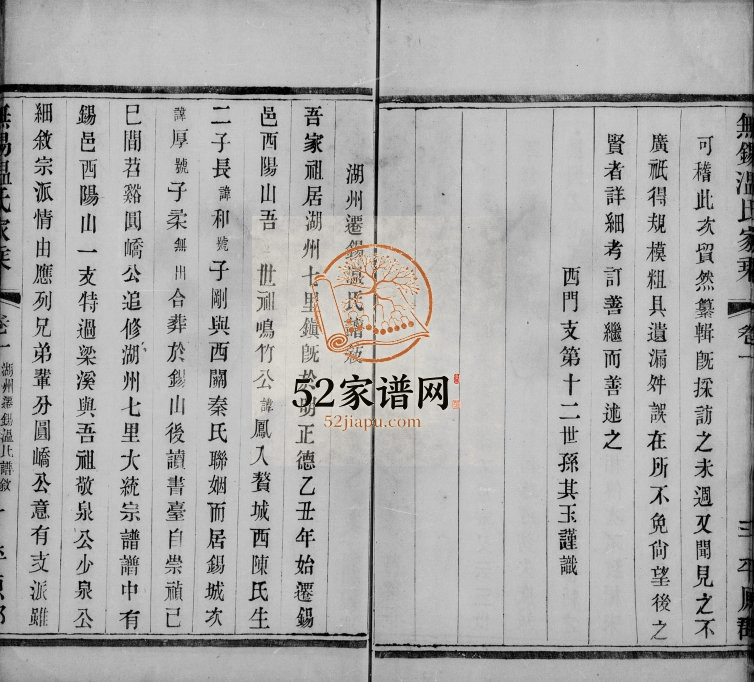 無錫溫氏家乘 卷一
可稽此次貿然纂輯旣採訪之未週又聞見之不
廣祇得規模粗具遺漏舛誤在所不免尙望後之
賢者詳細考訂善繼而善述之
西門支第十二世孫其玉謹識
湖州遷錫溫氏譜敘
吾家祖居湖州七里鎭旣於明正德乙丑年始遷錫
邑西陽山吾 世祖鳴竹公諱鳳入贅城西陳氏生
二子長諱和號子剛與西關秦氏聯姻而居錫城次
諱厚號子柔無出合葬於錫山後讀書臺自崇禎己
巳間苕谿圓嶠公追修湖州七里大統宗譜譜中有
錫邑西陽山一支特過梁溪與吾祖敬泉公少泉公
細敘宗派情由應列兄弟輩分圓嶠公意有支派雖
無錫溫氏家乘 卷一 湖州遷錫溫氏譜敘
52家谱网
52jiapu.com